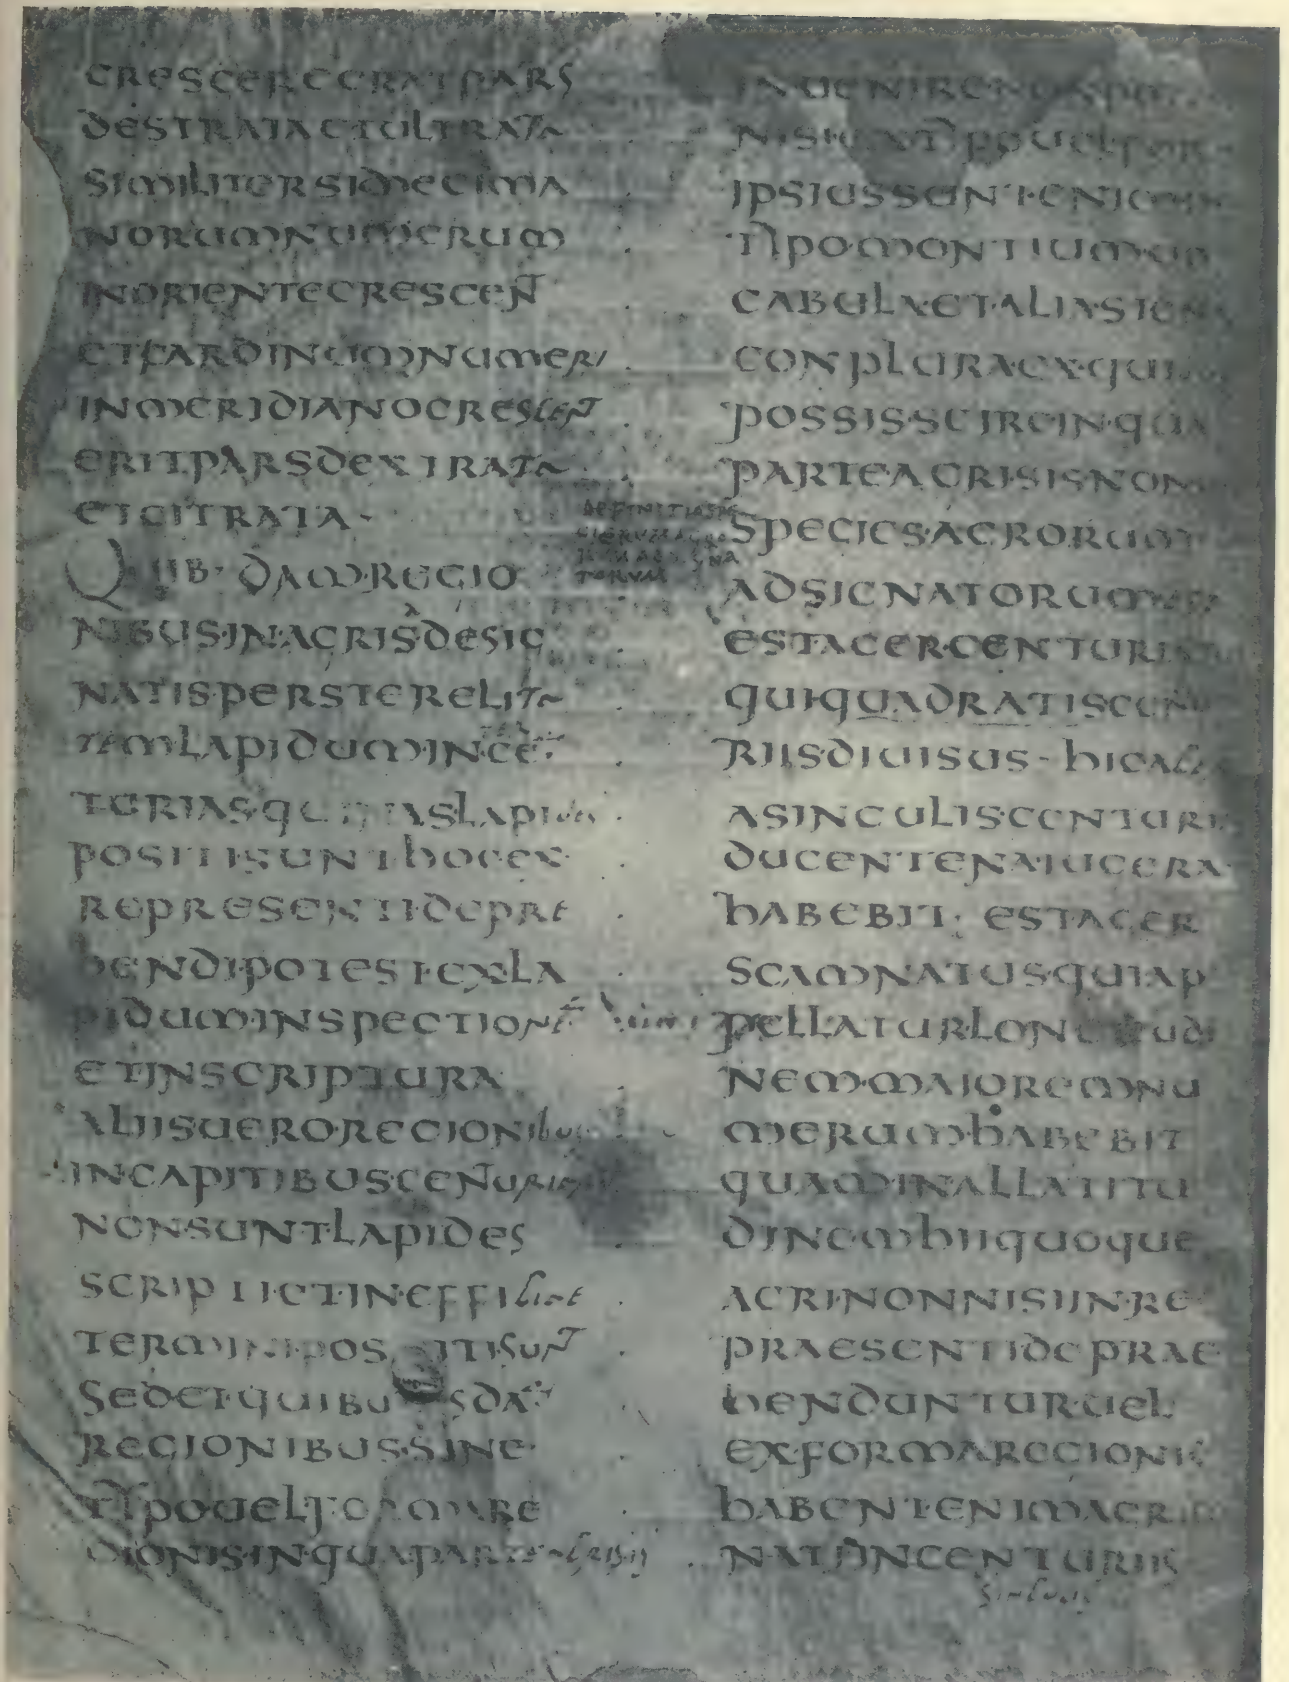 CRESCERE ERAT PARS
DESTRATA ET ULTRATA
SIMILITER SI DECIMA
NORUM NUMERUM
IN ORIENTE CRESCENT
ET CARDINUM NUMERI
IN MERIDIANO CRESCENT
ERIT PARS DEXTRATA
ET CITRATA
QUIB· DAM REGIO
NIBUS IN AGRIS DESIG
NATIS PERSTERELIT
TEM LAPIDUM IN CE
TURIAS LAPI
POSITI SUNT HOC EX
REPRESENTI DEPRE
HENDI POTEST EX LA
PIDUM INSPECTIONE
ET INSCRIPTURA
ALIIS UERO REGIONIBUS
IN CAPITIBUS CENTURIARUM
NON SUNT LAPIDES
SCRIPTI ET IN EFFI
TERMINI POSITI SUNT
SED ET QUIBUSDA
REGIONIBUS SINE
TYPO UEL FORMA RE
GIONIS IN QUA PARTE
DEFINITIA SPE
CIERUM AGRO
TORUM
INUENIRE NON PO
NISI TYPO UEL FOR
IPSIUS SUNT ENIM IN
TYPO MONTIUM UO
CABULA ET ALIA SIGNA
CONPLURA EX QUI
POSSIS SCIRE IN QUA
PARTE AGRI SIS NON
SPECIES AGRORUM
ADSIGNATORUM
EST AGER CENTURIATUS
QUI QUADRATIS CENTU
RIIS DIUISUS- HIC
A SINGULIS CENTURI
DUCENTENA IUGERA
HABEBIT· EST AGER
SCAMNATUS QUI AP
PELLATUR LONGITUDI
NEM MAIOREM NU
MERUM HABEBIT
QUAM IN ALLATITU
DINEM HII QUOQUE
AGRI NON NISI IN RE
PRAESENTI DEPRAE
HENDUNTUR UEL
EX FORMA REGIONIS
HABENT ENIM AGRI
NATI IN CENTURIIS
SINGULIS